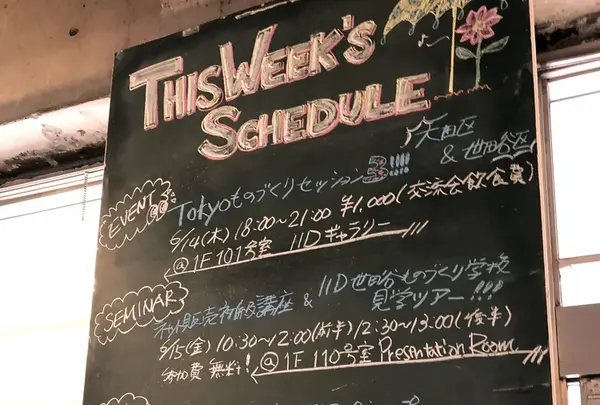 THIS WEEK'S
SCHEDULE
大田区
& 世田谷区
EVENT
Tokyoものづくりセッション3!!!!
6/14(木) 18:00~21:00 ¥1,000(交流会飲食費)
@1F 101号室 IIDギャラリー
SEMINAR
ネット販売初級講座 & IID世田谷ものづくり学校
見学ツアー!!!
6/15(金) 10:30~12:00(前半) 12:30~13:00(後半)
参加費 無料! @1F 110号室 Presentation Room